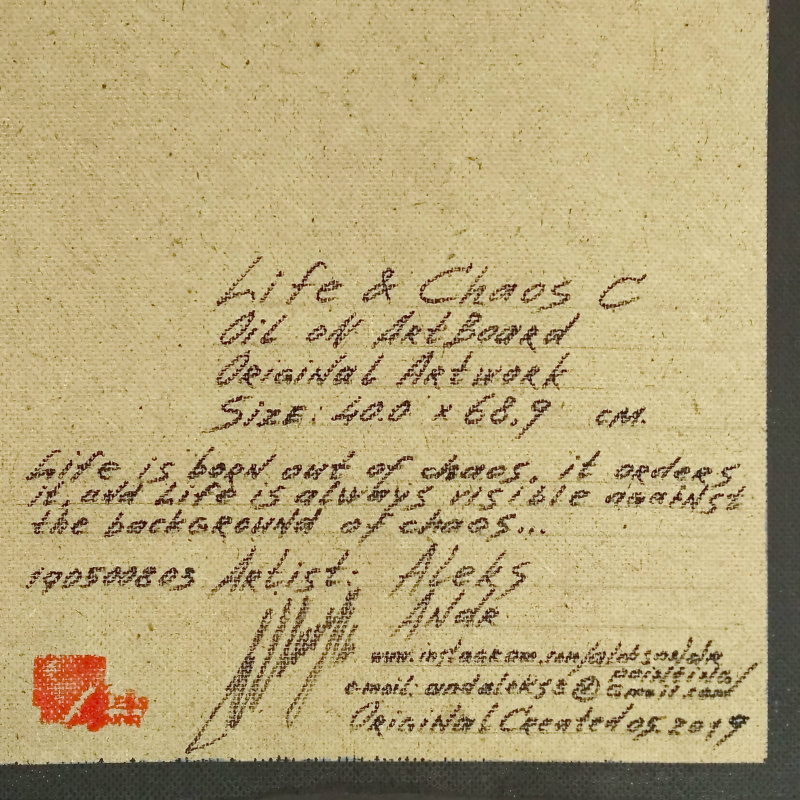 Life & Chaos C
Oil on ArtBoard
Original Artwork
Size: 40.0 x 68.9 cm.
Life is born out of chaos, it orders
it, and Life is always visible against
the background of chaos...
190500803 Artist: Aleks
Andr
www.instagram.com/
painting/
e-mail: @ Gmail.com
Original Created 05.2019